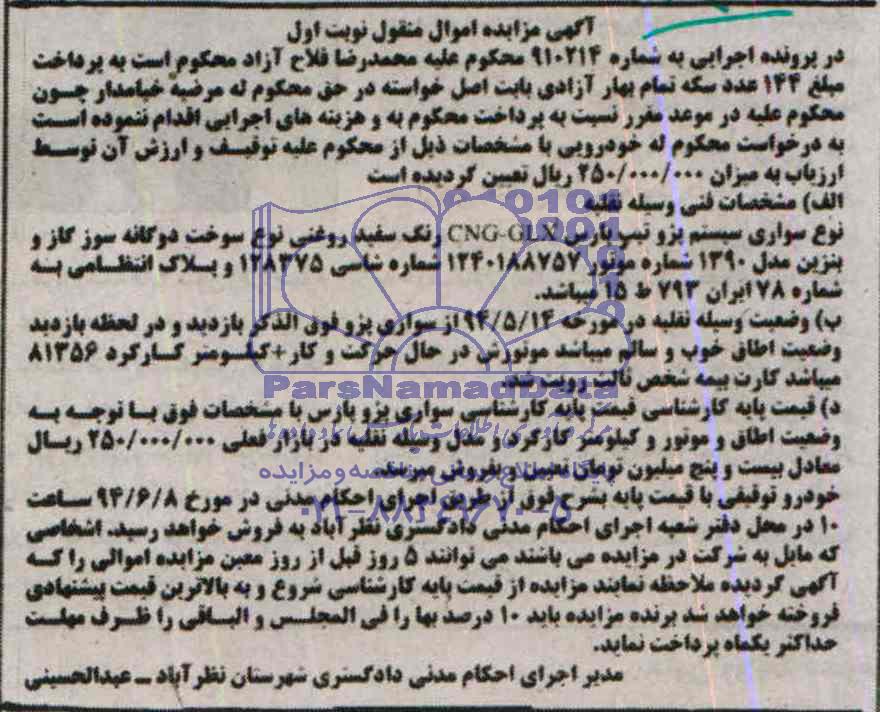 آگهی مزایده اموال منقول نوبت اول
در پرونده اجرایی به شماره ۹۱۰۲۱۴ محکوم علیه محمدرضا فلاح آزاد محکوم است به پرداخت
مبلغ ۱۴۴ عدد سکه تمام بهار آزادی بابت اصل خواسته در حق محکوم له مرضیه خبامدار چون
محکوم علیه در موعد مقرر نسبت به پرداخت محکوم به و هزینه های اجرایی اقدام ننموده است
به درخواست محکوم له خودرویی با مشخصات ذیل از محکوم علیه توقیف و ارزش آن توسط
ارزیاب به میزان ۲۵۰/۰۰۰/۰۰۰ ریال تعیین گردیده است
الف) مشخصات فنی وسیله نقلیه
نوع سواری سیستم پژو تیپ پارس CNG-GLX رنگ سفید روغنی نوع سوخت دوگانه سوز گاز و
بنزین مدل ۱۳۹۰ شماره موتور ۱۲۴۰۱۸۸۷۵۷ شماره شاسی ۱۲۸۳۷۵ و پلاک انتظامی به
شماره ۷۸ ایران ۷۹۳ ط ۱۵ میباشد.
ب) وضعیت وسیله نقلیه در مورخه ۹۴/۵/۱۴ از سواری پژو فوق الذکر بازدید و در لحظه بازدید
وضعیت اطاق خوب و سالم میباشد موتورش در حال حرکت و کار+کیلومتر کارکرد ۸۱۳۵۶
میباشد کارت بیمه شخص ثالث رویت شد.
ParsNamadData
د) قیمت پایه کارشناسی قیمت پایه کارشناسی سواری پژو پارس با مشخصات فوق با توجه به
وضعیت اطاق و موتور و کیلومتر کارکرد و مدل وسیله نقلیه در بازار فعلی ۲۵۰/۰۰۰/۰۰۰ ریال
معادل بیست و پنج میلیون تومان تعیین و بفروش میرسد.
خودرو توقیفی با قیمت پایه بشرح فوق از طریق اجرای احکام مدنی در مورخ ۹۴/۶/۸ ساعت
۱۰ در محل دفتر شعبه اجرای احکام مدنی دادگستری نظرآباد به فروش خواهد رسید. اشخاصی
که مایل به شرکت در مزایده می باشند می توانند ۵ روز قبل از روز معین مزایده اموالی را که
آگهی گردیده ملاحظه نمایند مزایده از قیمت پایه کارشناسی شروع و به بالاترین قیمت پیشنهادی
فروخته خواهد شد برنده مزایده باید ۱۰ درصد بها را فی المجلس و الباقی را ظرف مهلت
حداکثر یکماه پرداخت نماید.
مدیر اجرای احکام مدنی دادگستری شهرستان نظرآباد ــ عبدالحسینی